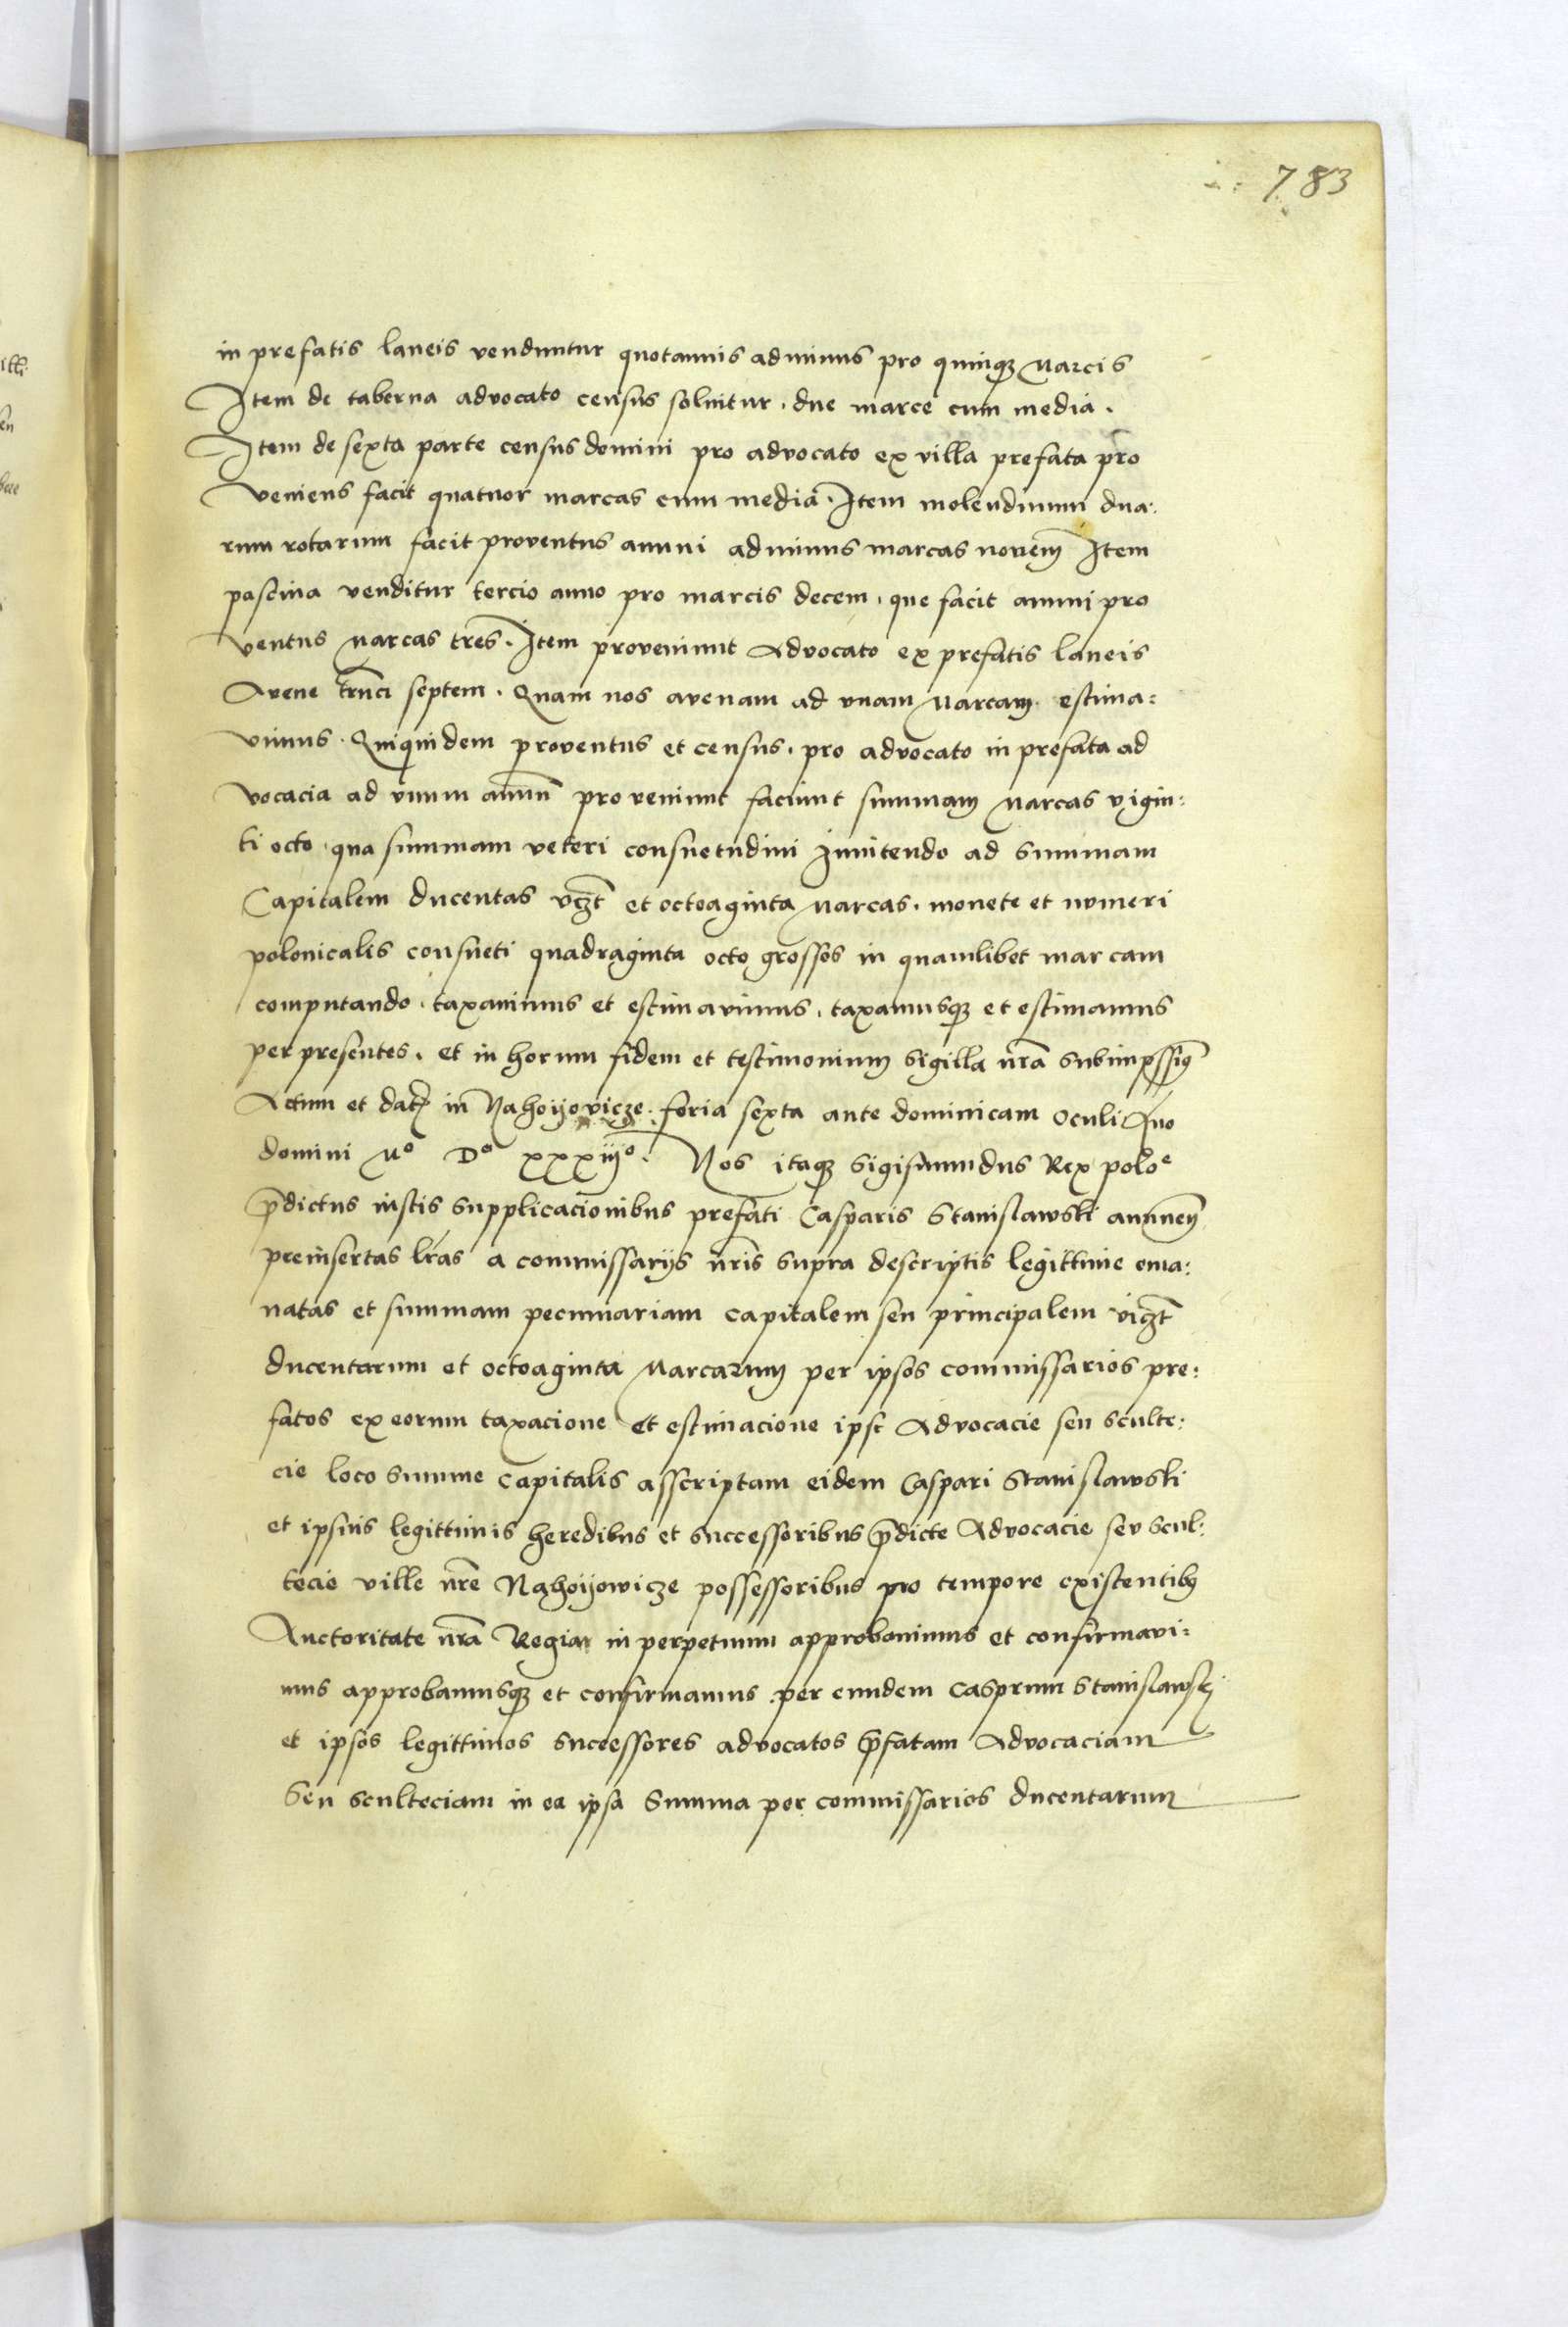 783
in prefatis laneis venduntur quotannis adminus pro quinq3 Marcis
Item de taberna advocato census solvitur . due marce cum media .
Item de sexta parte census domini pro advocato ex villa prefata pro
veniens facit quatuor marcas cum media . Item molendinum dua:
rum rotarum facit proventus annui adminus marcas novem Item
pascua venditur tercio anno pro marcis decem . que facit annui pro
ventus Marcas tres . Item proveniunt Advocato ex prefatis laneis
Avene trunci septem . Quam nos avenam ad unam Marcam estima:
vimus . Quiquidem proventus et census . pro advocato in prefata ad
vocacia ad unum annum proveniunt faciunt summam Marcas vigin:
ti octo . qua summam veteri consuetudini Innitendo ad summam
Capitalem ducentas vczt et octoaginta Marcas . monete et numeri
polonicalis consueti quadraginta octo grossos in quamlibet marcam
computando . taxavimus et estimavimus . taxamusq3 et estimamus
per presentes . et in horum fidem et testimonium sigilla nra
Actum et dat in Nahoijovicze . feria sexta ante dominicam Oculi Ano
domini Mo Do xxxiijo . Nos itaq3 Sigismundus Rex poloe
pdictus iustis supplicacionibus prefati Casparis Stanislawski annuen
preinsertas lras a commissarijs nris supra descriptis legittime ema:
natas et summam pecuniariam capitalem seu principalem viczt
ducentarum et octoaginta Marcarum per ipsos commissarios pre:
fatos ex eorum taxacione et estimacione ipse Advocacie seu sculte:
cie loco summe capitalis asscriptam eidem Caspari Stanislawski
et ipsius legittimis heredibus et successoribus pdicte Advocacie seu scul:
tecie ville nre Nahoijowicze possessoribus pro tempore existentib9
Auctoritate nra Regia in perpetuum approbavimus et confirmavi:
mus approbamusq3 et confirmamus per eundem Casprum Stanislawskj
et ipsos legittimos successores advocatos pfatam Advocaciam
Seu sculteciam in ea ipsa Summa per commissarios ducentarum